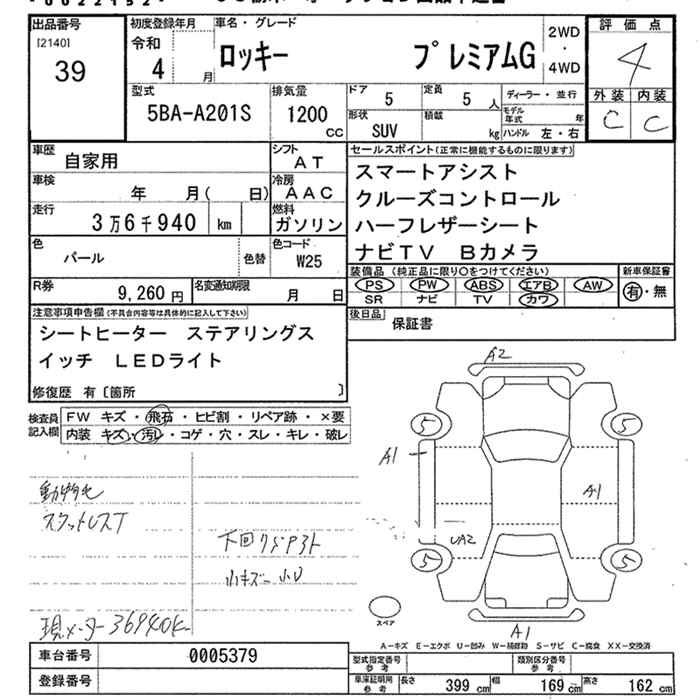 出品番号 初度登録年月 車名・グレード 評価点
[2140] 39
令和 4 月
ロッキー プレミアムG
2WD・4WD
4
型式 5BA-A201S
排気量 1200 cc
ドア 5 定員 5 人
ディーラー・並行
外装 内装
C C
形状 SUV 積載 kg
モデル年式 年
ハンドル 左・右
車歴 自家用
シフト AT
セールスポイント(正常に機能するものに限ります)
スマートアシスト
クルーズコントロール
ハーフレザーシート
ナビTV Bカメラ
車検 年 月( 日)
冷房 AAC
走行 3万6千940 km
燃料 ガソリン
色 パール 色替
色コード W25
装備品(純正品に限り○をつけてください)
PS PW ABS エアB AW
SR ナビ TV カワ
新車保証書
有・無
R券 9,260円
名変通知期限 月 日
後日品 保証書
注意事項申告欄(不具合内容等は具体的に記入して下さい)
シートヒーター ステアリングス
イッチ LEDライト
修復歴 有〔箇所 〕
検査員記入欄
FW キズ・飛石・ヒビ割・リペア跡・×要
内装 キズ・汚レ・コゲ・穴・スレ・キレ・破レ
スタットレスT
下回りサビ
小キズ 小U
現メーター36940K
A2
5 5
A1
A1
UA2
5 5
スペア
A1
A-キズ E-エクボ U-凹み W-補修跡 S-サビ C-腐食 XX-交換済
車台番号 0005379
登録番号
型式指定番号 参考
類別区分番号 参考
車庫証明用 参考
長さ 399 cm 幅 169 cm 高さ 162 cm